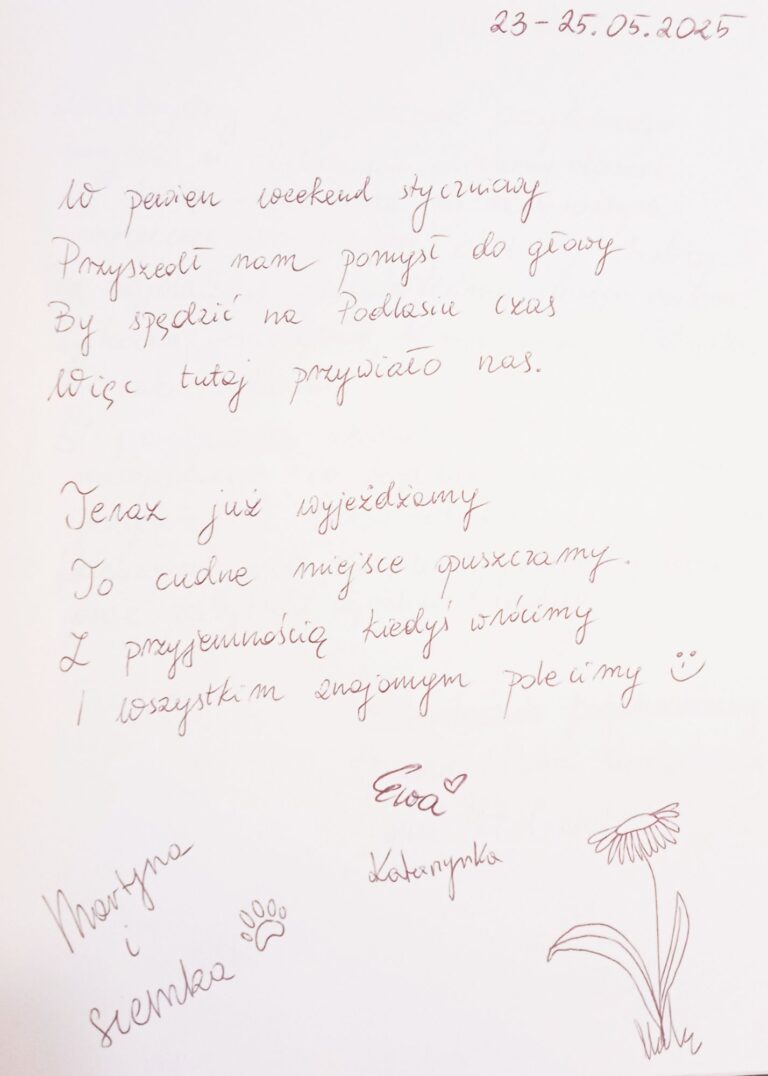 23-25.05.2025
W pewien weekend styczniowy
Przyszedł nam pomysł do głowy
By spędzić na Podlasiu czas
Więc tutaj przywiało nas.
Teraz już wyjeżdżamy
To cudne miejsce opuszczamy.
Z przyjemnością kiedyś wrócimy
I wszystkim znajomym polecimy
Ewa
Katarzynka
Martyna
i